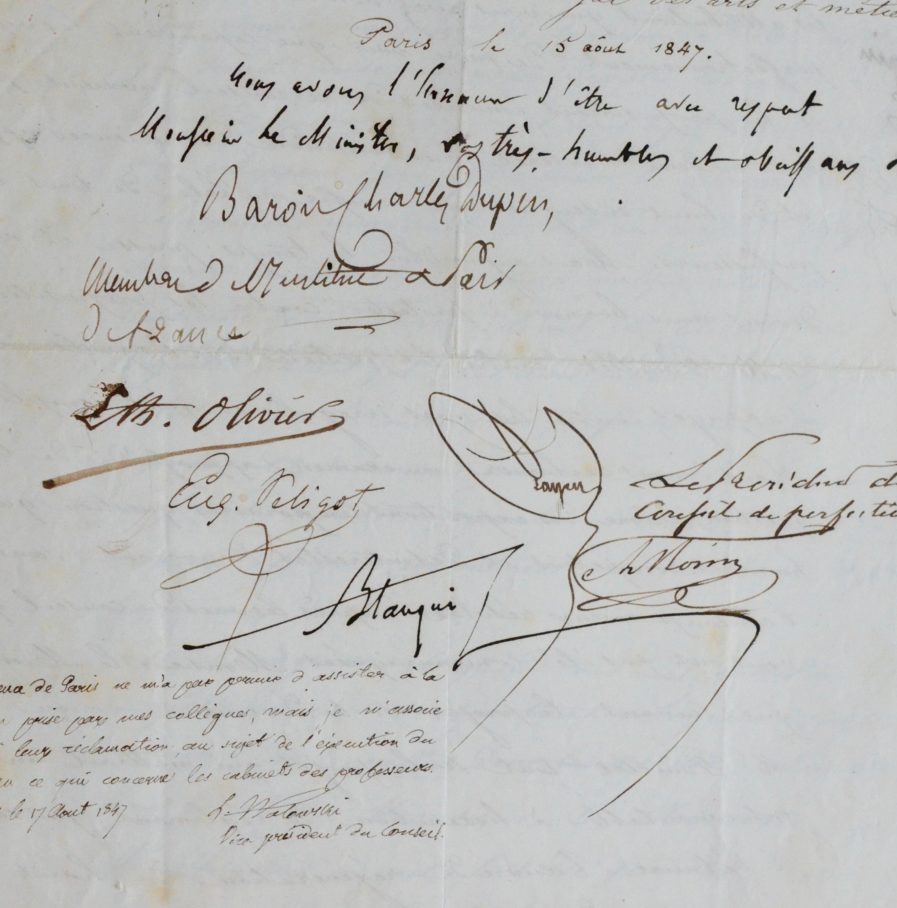 des arts et métie
Paris le 15 août 1847.
Nous avons l'honneur d'être avec respect
Monsieur le Ministre, vos très-humbles et obéissans
Baron Charles Dupin,
Membre de l'Institut & Pair
de France
Th. Olivier
Payen
Le Président d
Eug. Peligot
Conseil de perfectio
AMorin
Blanqui
de Paris ne m'a pas permis d'assister à la
prise par mes collègues, mais je m'associe
leur réclamation au sujet de l'éxecution du
en ce qui concerne les cabinets des professeurs.
le 17 Aout 1847
L. Wolowski
Vice président du Conseil.